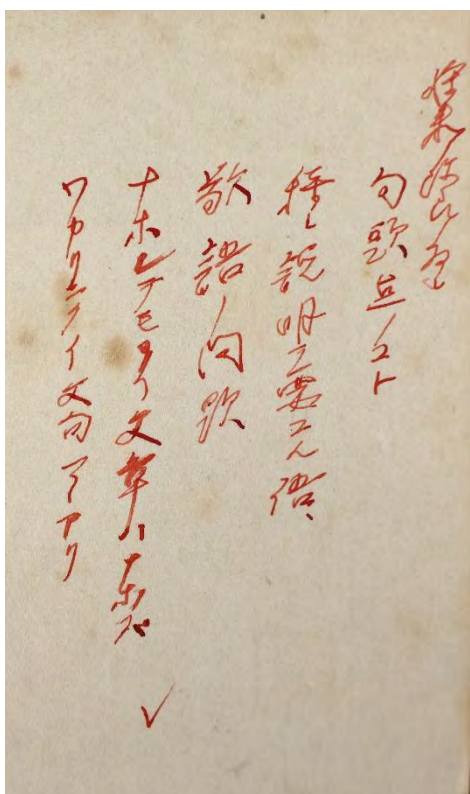 句頭点ノコト
種々説明ヲ要スル語、
敬語ノ問題
ナホシテモヨイ文章ハナホス
ワカリニクイ文句マヽアリ